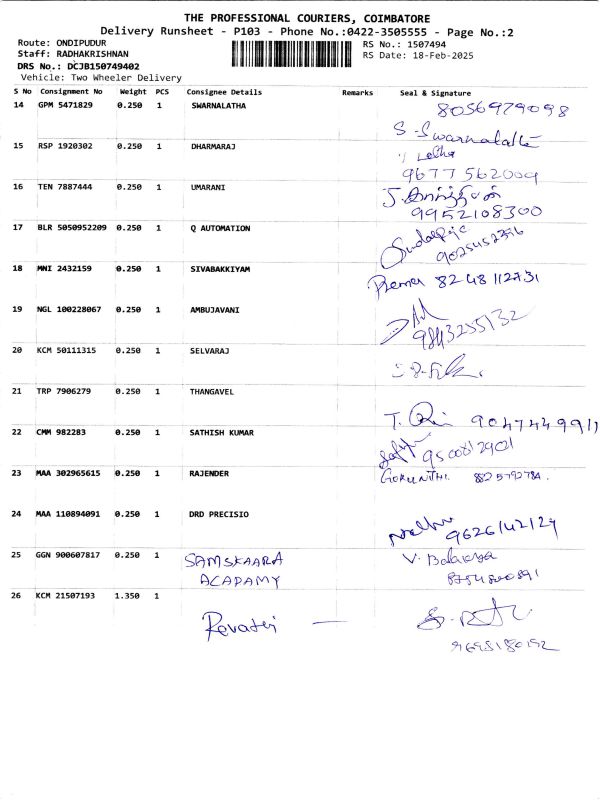 THE PROFESSIONAL COURIERS, COIMBATORE
Delivery Runsheet - P103 - Phone No.:0422-3505555 - Page No.:2
Route: ONDIPUDUR RS No.: 1507494
Staff: RADHAKRISHNAN RS Date: 18-Feb-2025
DRS No.: DCJB150749402
Vehicle: Two Wheeler Delivery
S No Consignment No Weight PCS Consignee Details Remarks Seal & Signature
14 GPM 5471829 0.250 1 SWARNALATHA 8056979098
S-Swarnalatha
15 RSP 1920302 0.250 1 DHARMARAJ
9677562009
16 TEN 7887444 0.250 1 UMARANI
9952108300
17 BLR 5050952209 0.250 1 Q AUTOMATION
18 MNI 2432159 0.250 1 SIVABAKKIYAM
Prema 8248112731
19 NGL 100228067 0.250 1 AMBUJAVANI
9843255132
20 KCM 50111315 0.250 1 SELVARAJ
21 TRP 7906279 0.250 1 THANGAVEL
T. 9047449911
22 CMM 982283 0.250 1 SATHISH KUMAR
23 MAA 302965615 0.250 1 RAJENDER
24 MAA 110894091 0.250 1 DRD PRECISIO
9626142129
25 GGN 900607817 0.250 1 SAMSKAARA
ACAPAMY
26 KCM 21507193 1.350 1
Revathi